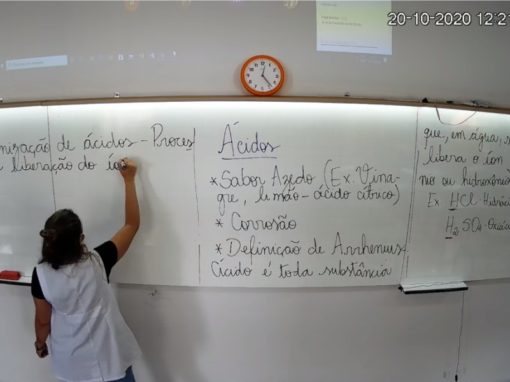 20-10-2020 12:21
nização de ácidos - Proces
liberação do íon
Ácidos
*Sabor Azedo (Ex. Vina-
gre, limão - ácido cítrico)
* Corrosão
* Definição de Arrhenius
Ácido é toda substância
que, em água,
libera o íon
H₂SO₄
Ex HCl